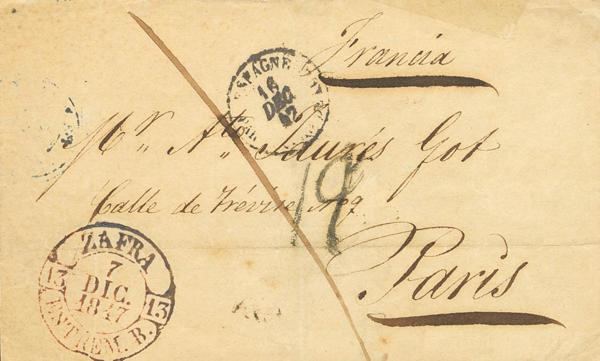 Francia
ESPAGNE
16
DEC
47
Mr. At. Saurés Got
Calle de Trévise No 9
19
Paris
ZAFRA
7
DIC.
1847
13 13
ESTREM. B.